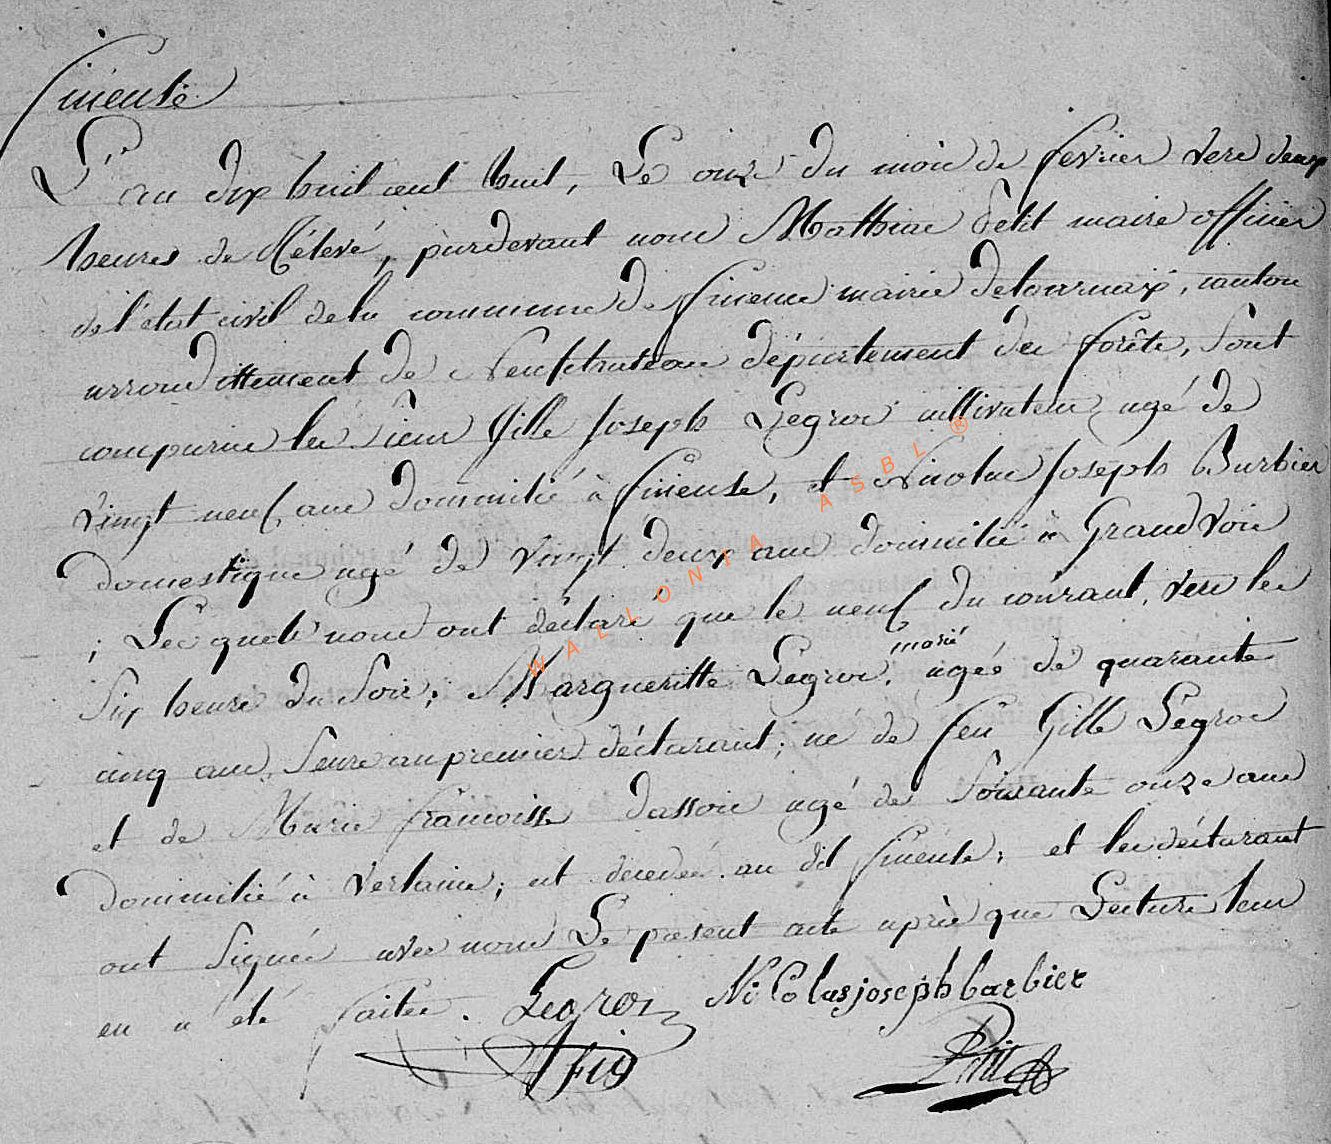 fineuse
L'an dix huit cent huit, Le onze du mois de fevrier vers deux
heures de Rélevé, pardevant nous Mathieu Petit maire officier
de l'état civil de la commune de fineuse mairie de tournaix, canton
arrondittement de Neufchateau département des forêts, Sont
comparus les Sieur Gille Joseph Legros cultivateur agé de
Vingt neuf ans domicilié à fineuse, et Nicolas Joseph Barbier
domestique agé de vingt deux ans domicilié a Grand Voir
; Lesquels nous ont déclaré que le neuf du courant, vers les
Six heures du Soir, Margueritte Legros, marié agée de quarante
cinq ans, Seure au premier déclarant; né de feu Gille Legros
et de Marie francoisse dassoie agé de Soixante onze ans
domicilié à Verlaine; est décédé au dit fineuse, et les déclarant
ont Signés avec nous Le présent acte après que Lecture leur
en a été faitte. Legros Nicolas joseph barbier
fis Petit
WALLONIA ASBL ®